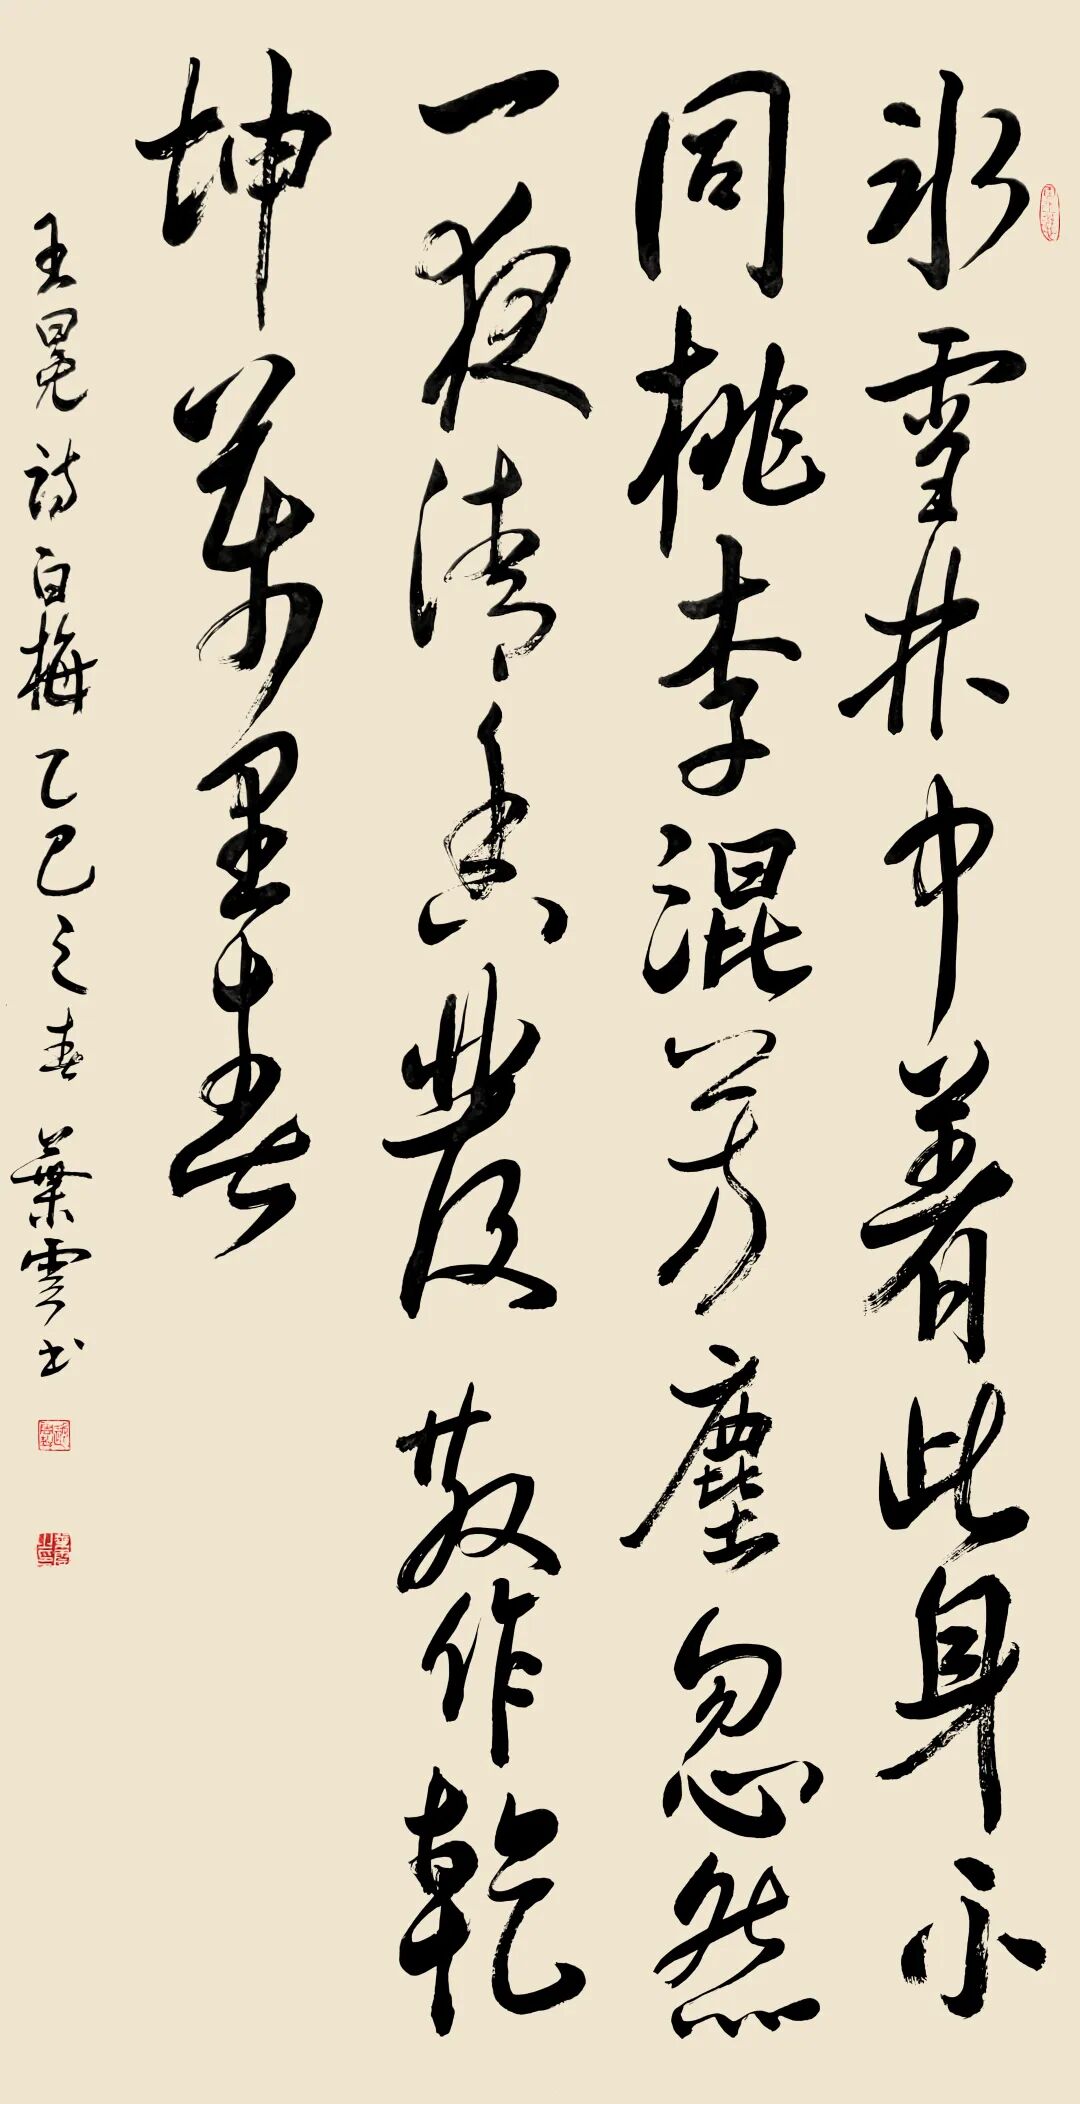 冰雪林中着此身不
同桃李混芳塵忽然
一夜清香發散作乾
坤萬里春
王冕詩白梅乙巳之春葉雲书